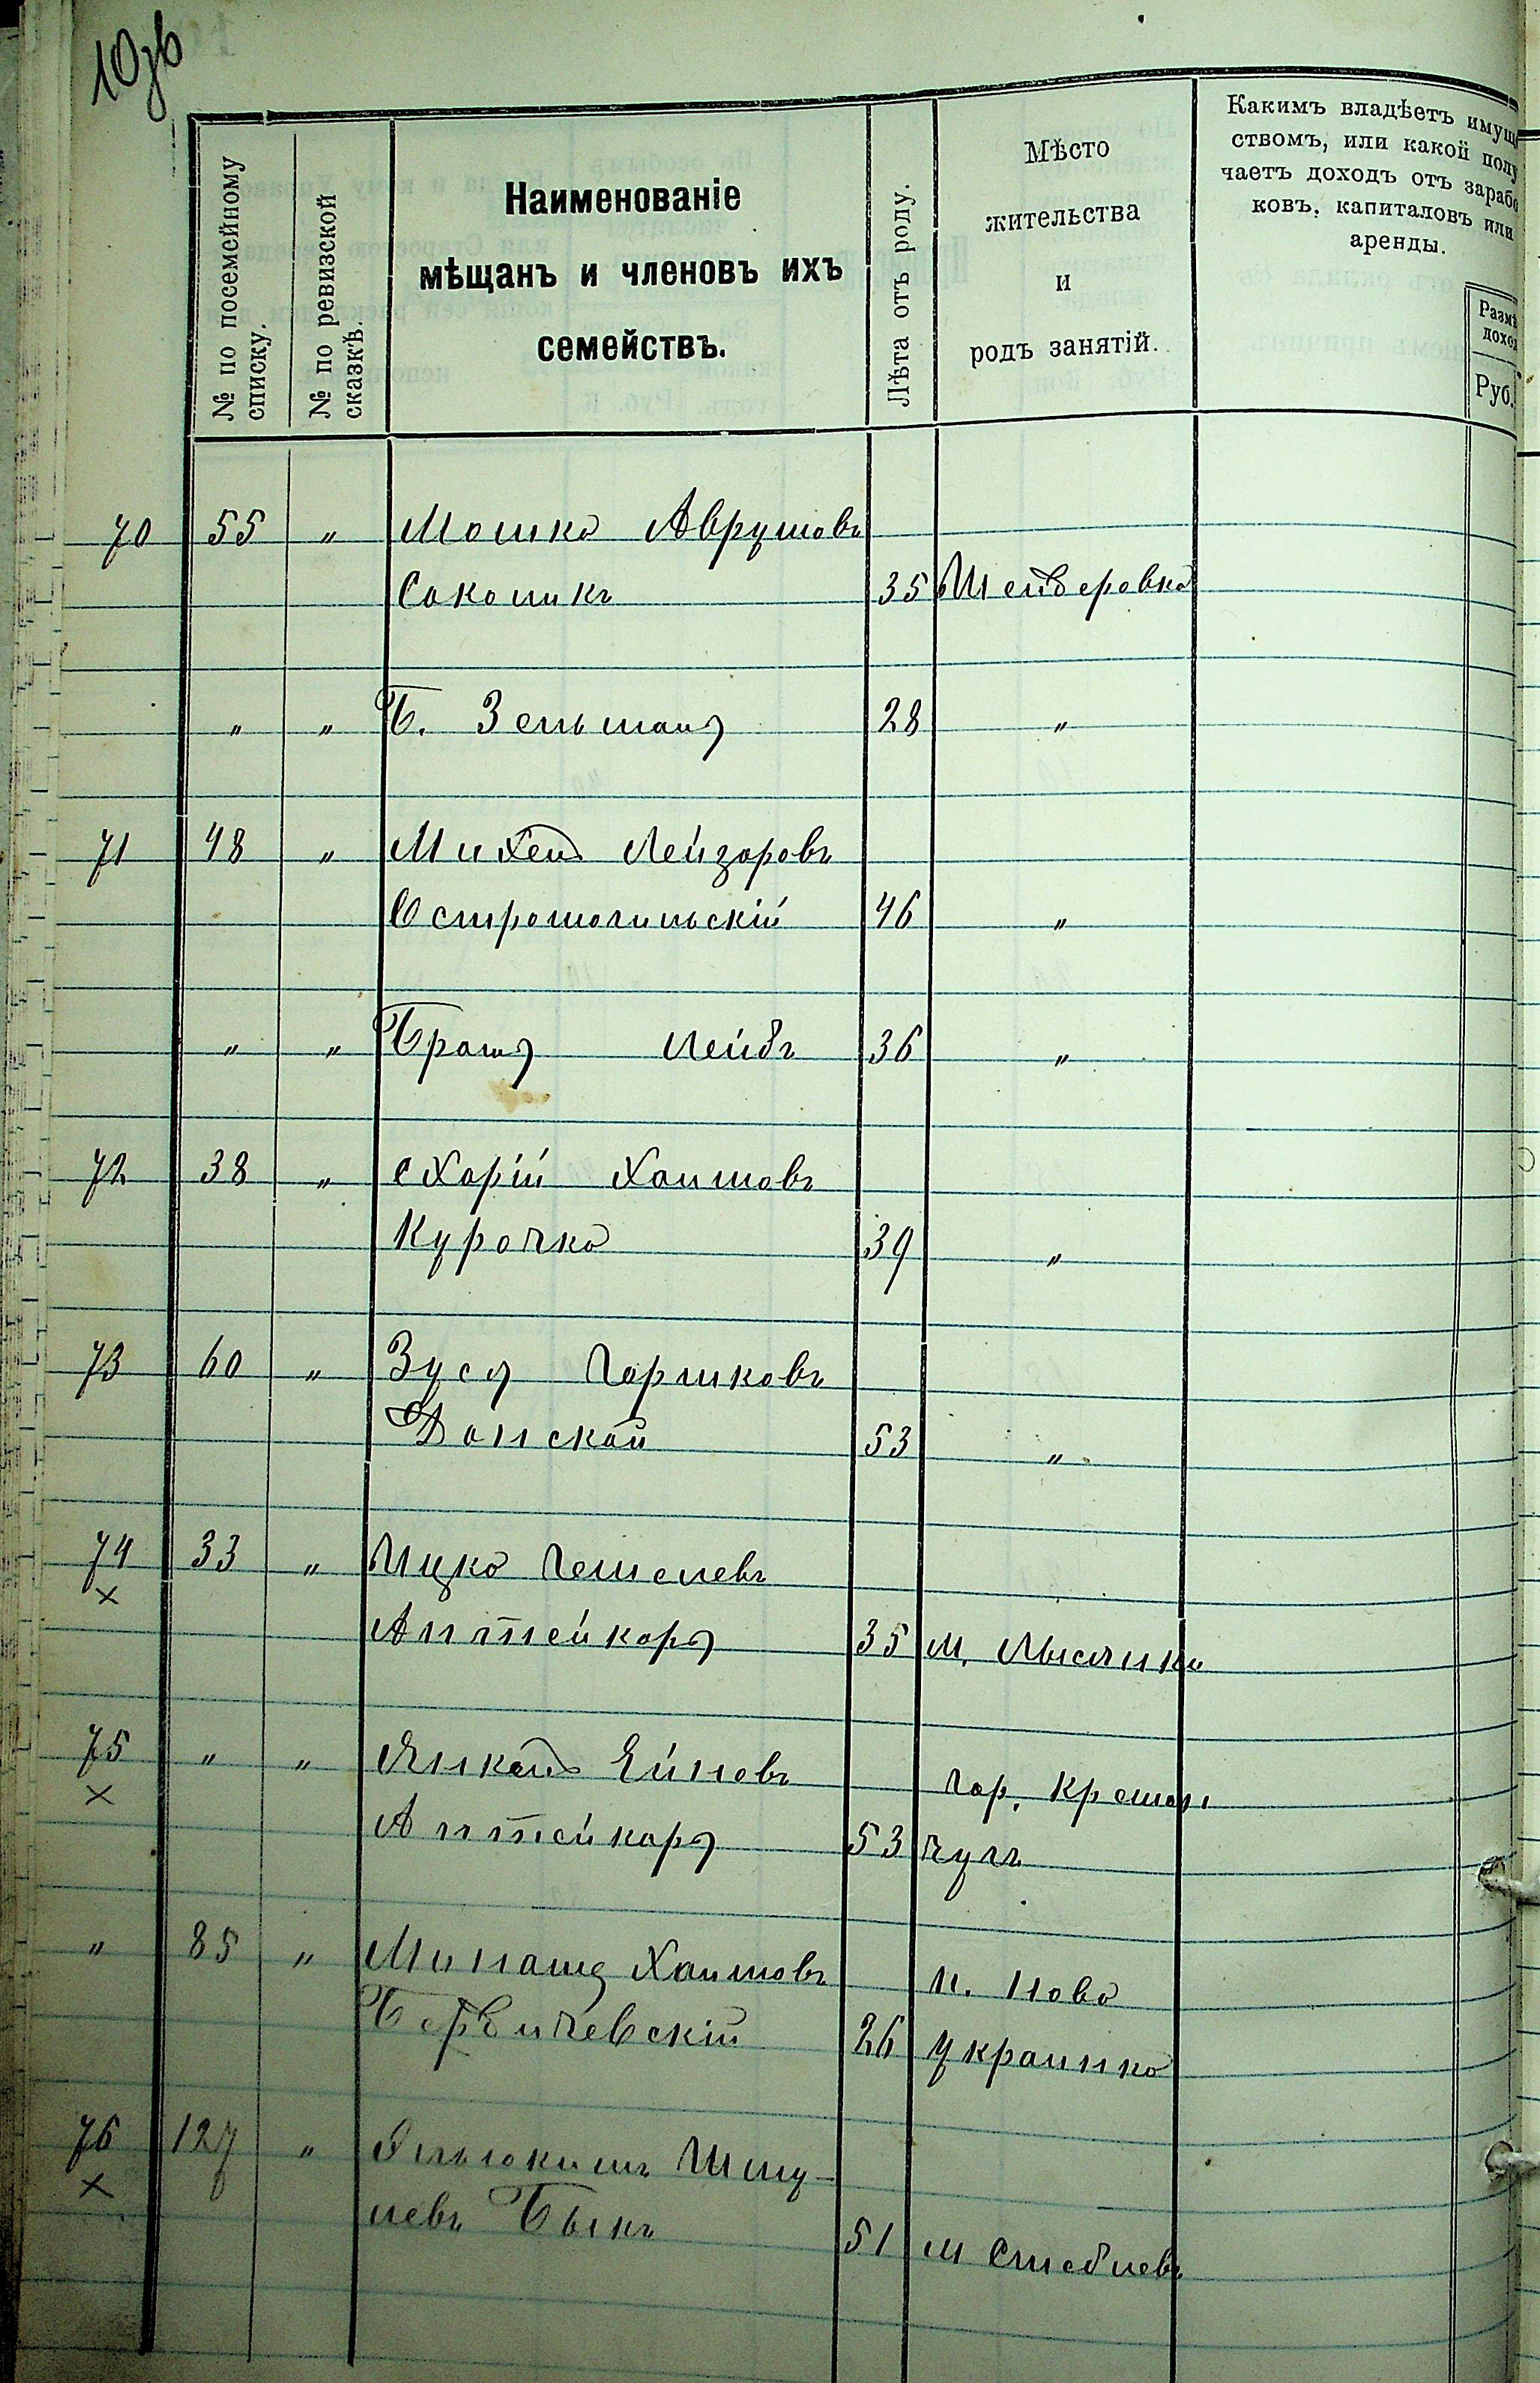 № по посемейному списку.
№ по ревизской сказкѣ.
Наименованіе
мѣщанъ и членовъ ихъ
семействъ.
Лѣта отъ роду.
Мѣсто
жительства
и
родъ занятій.
Какимъ владѣетъ имуще
ствомъ, или какой полу
чаетъ доходъ отъ зарабо
ковъ, капиталовъ или
аренды.
Размѣ
доход
Руб.
70 55 " Мошко Аврумовъ
Соколикъ 35
" " Б. Зельманъ 28 "
71 48 " Михель Лейзоровъ
Остромогильскій 46 "
" " Братъ Лейбъ 36 "
72 38 " Схарій Хаимовъ
Курочка 39 "
73 60 " Зусь Гершковъ
Донской 53 "
74 33 " Ицко Гешелевъ
× Аптейкарь 35 м. Лысянки
75 " " Янкель Ейновъ гор. Кремен
× Аптейкарь 53 чугъ
" 85 " Минаше Хаимовъ п. Ново
Бердичевскій 26 украинка
76 127 " Эльюкимъ Шму-
× левъ Быкъ 51 м Стеблевъ